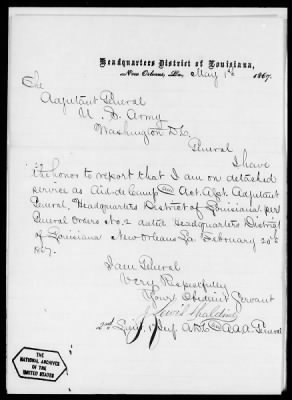 Headquarters District of Louisiana,
New Orleans, La., May 1st 1867.
The
Adjutant General
U. S. Army
Washington D.C.
General
I have
the honor to report that I am on detached
service as Aid-de-Camp and Act. Asst. Adjutant
General, Headquarters District of Louisiana per
General Orders No. 2 dated Headquarters District
of Louisiana New Orleans La. February 20th
1867.
I am General
Very Respectfully
Your Obedient Servant
Lewis Spalding
2nd Lieut. 1st Inf. A.D.C. & A.A.A. General
THE
NATIONAL ARCHIVES
OF THE
UNITED STATES